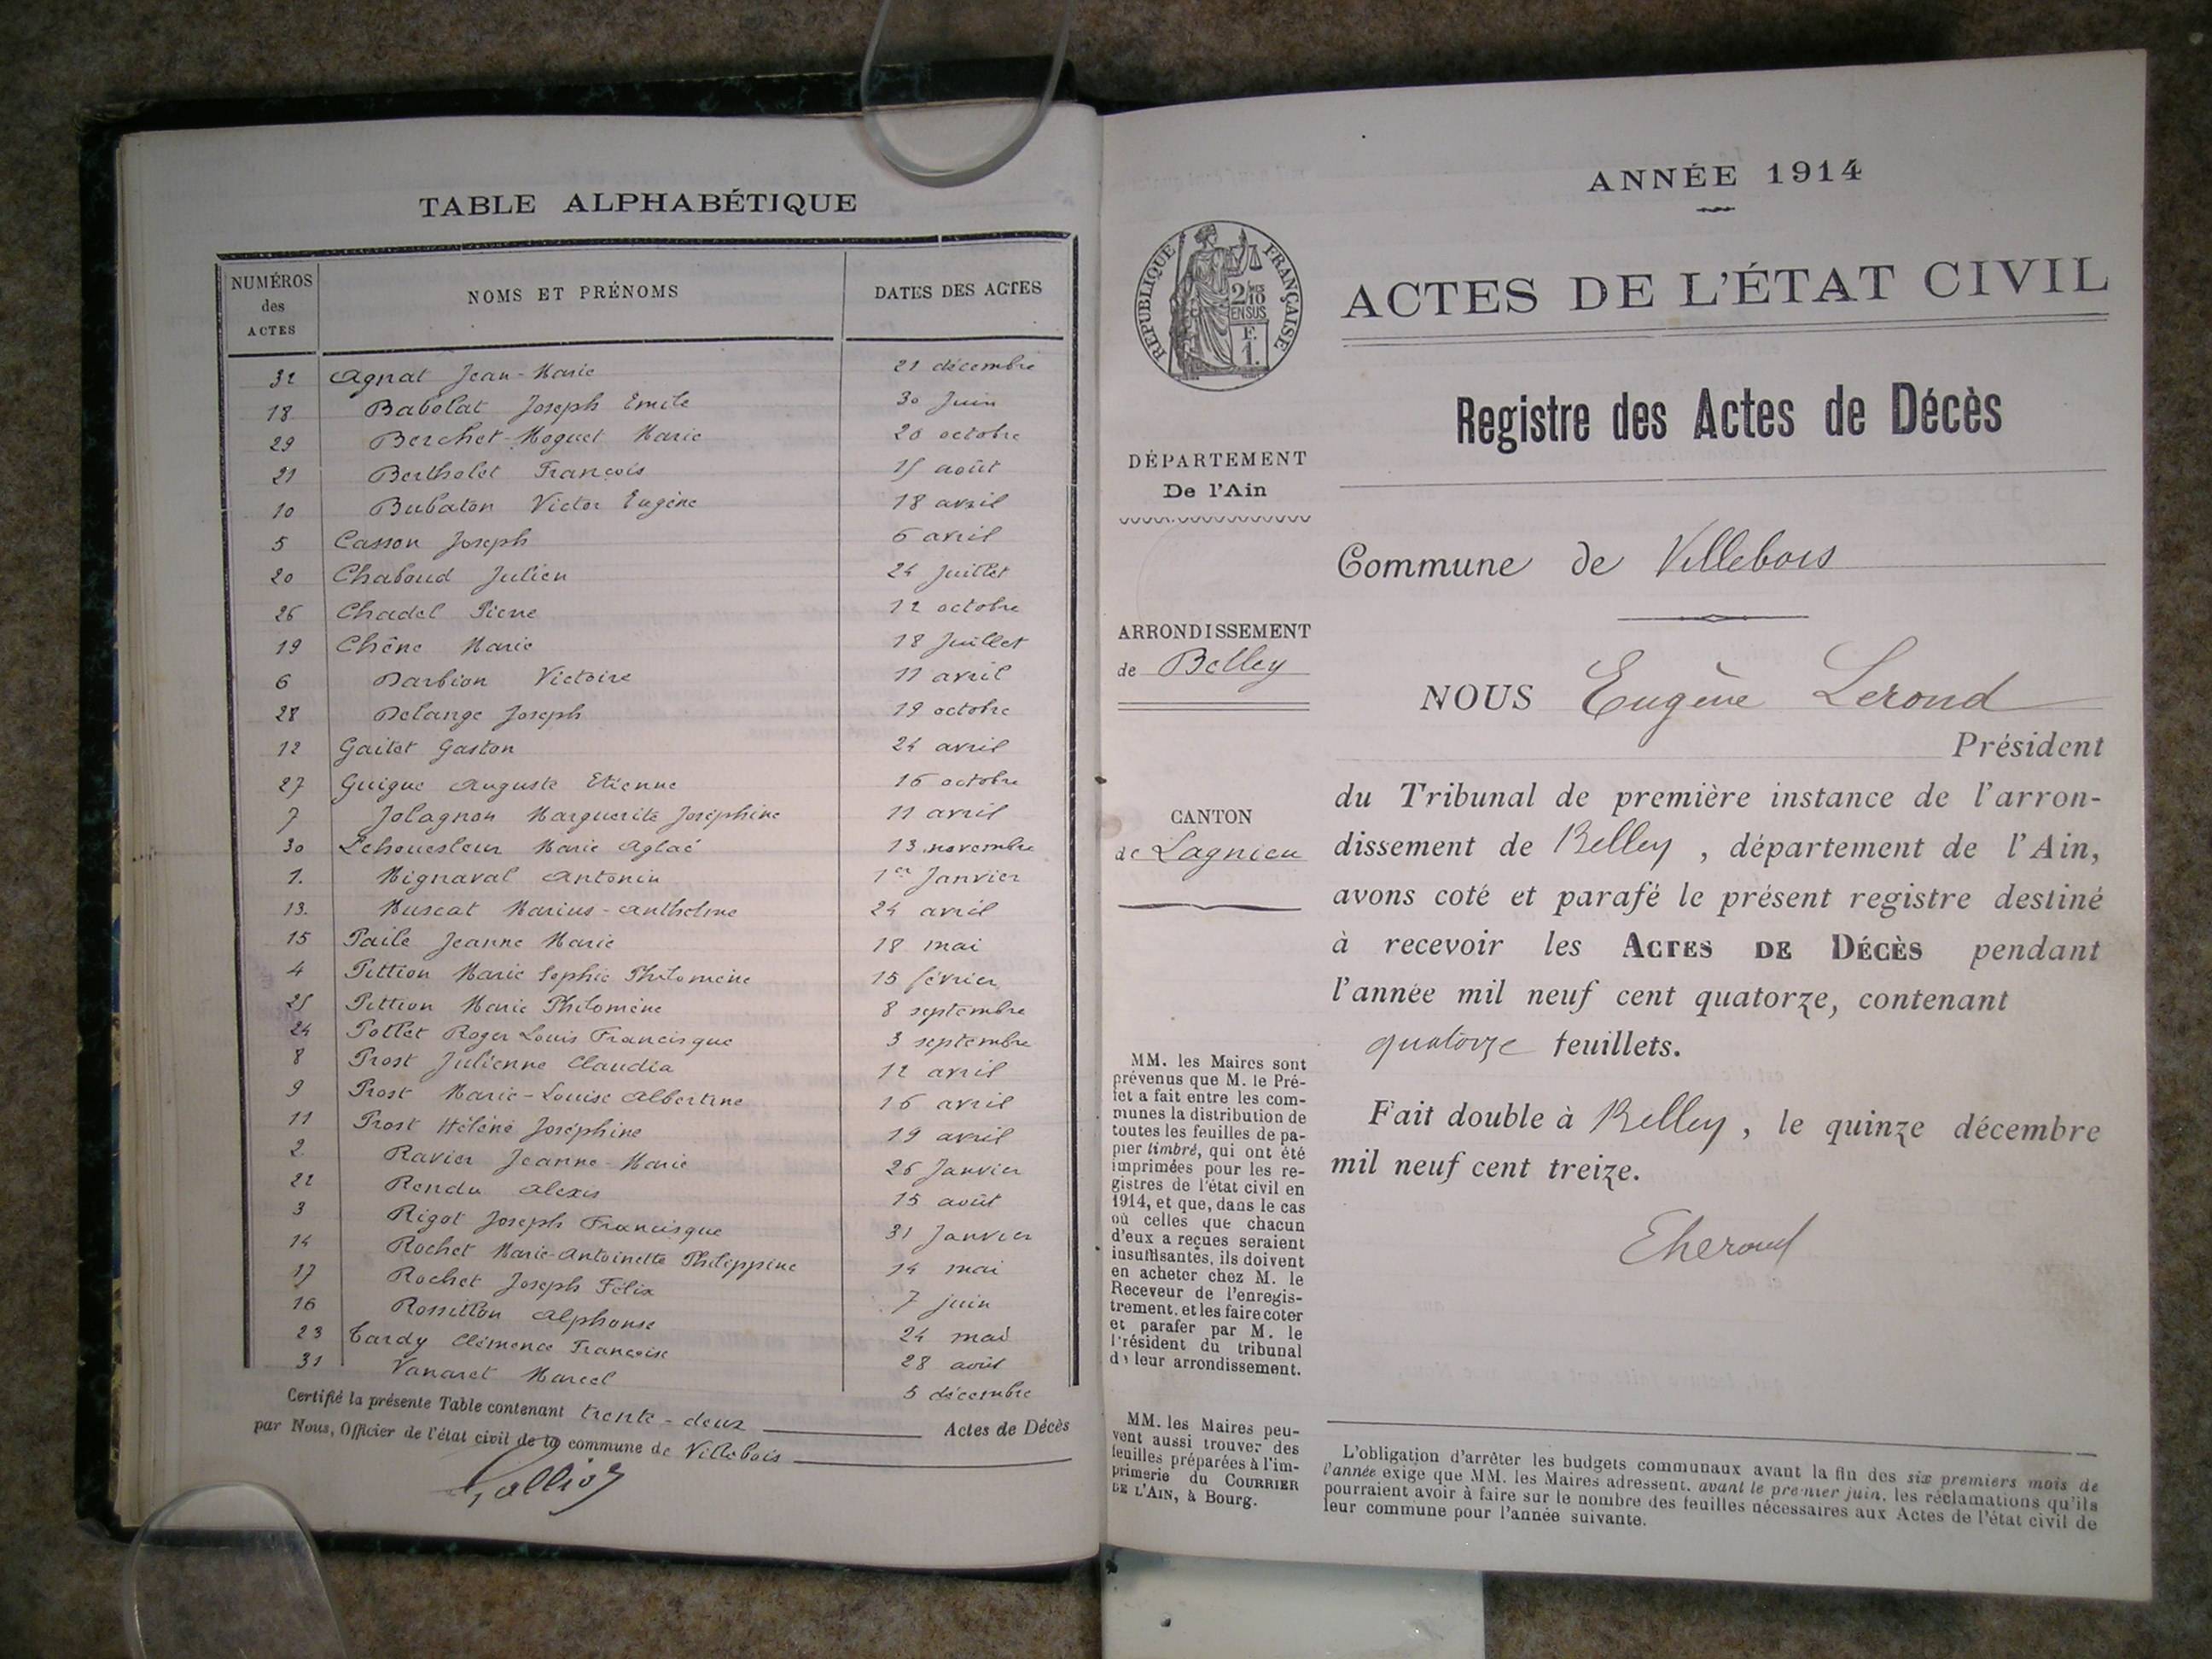 TABLE ALPHABÉTIQUE
NUMÉROS des ACTES NOMS ET PRÉNOMS DATES DES ACTES
32 Agnat Jean-Marie 21 décembre
18 Babolat Joseph Emile 30 Juin
29 Berchet-Moguet Marie 20 octobre
21 Bertholet François 15 août
10 Bubaton Victor Eugène 18 avril
5 Casson Joseph 6 avril
20 Chaboud Julien 24 Juillet
26 Chadel Pierre 12 octobre
19 Chêne Marie 18 Juillet
6 Darbion Victoire 11 avril
28 Delange Joseph 19 octobre
12 Gaitet Gaston 24 avril
27 Guigue Auguste Etienne 16 octobre
7 Jolagnon Marguerite Joséphine 11 avril
30 Lehouesleur Marie Aglaé 13 novembre
1. Mignaval Antonin 1er Janvier
13. Muscat Marius-Anthelme 24 avril
15 Paile Jeanne Marie 18 mai
4 Pittion Marie Sophie Philomène 15 février
25 Pittion Marie Philomène 8 septembre
24 Pottet Roger Louis Francisque 3 septembre
8 Prost Julienne Claudia 12 avril
9 Prost Marie-Louise Albertine 16 avril
11 Prost Hélène Joséphine 19 avril
2 Ravier Jeanne-Marie 26 Janvier
22 Rendu Alexis 15 août
3 Rigot Joseph Francisque 31 Janvier
14 Rochet Marie-Antoinette Philippine 14 mai
17 Rochet Joseph Félix 7 juin
16 Rossillon Alphonse 24 mai
23 Tardy Clémence Françoise 28 août
31 Vanaret Marcel 5 décembre
Certifié la présente Table contenant trente-deux Actes de Décès
par Nous, Officier de l'état civil de la commune de Villebois
ANNÉE 1914
RÉPUBLIQUE FRANÇAISE
2/10
EN SUS
F.
1.
ACTES DE L'ÉTAT CIVIL
Registre des Actes de Décès
DÉPARTEMENT
De l'Ain
Commune de Villebois
ARRONDISSEMENT
de Belley
NOUS Eugène Lerond
Président
CANTON
de Lagnieu
du Tribunal de première instance de l'arron-
dissement de Belley, département de l'Ain,
avons coté et parafé le présent registre destiné
à recevoir les ACTES DE DÉCÈS pendant
l'année mil neuf cent quatorze, contenant
quatorze feuillets.
Fait double à Belley, le quinze décembre
mil neuf cent treize.
MM. les Maires sont
prévenus que M. le Pré-
fet a fait entre les com-
munes la distribution de
toutes les feuilles de pa-
pier timbré, qui ont été
imprimées pour les re-
gistres de l'état civil en
1914, et que, dans le cas
où celles que chacun
d'eux a reçues seraient
insuffisantes, ils doivent
en acheter chez M. le
Receveur de l'enregis-
trement, et les faire coter
et parafer par M. le
Président du tribunal
de leur arrondissement.
MM. les Maires peu-
vent aussi trouver des
feuilles préparées à l'im-
primerie du COURRIER
DE L'AIN, à Bourg.
L'obligation d'arrêter les budgets communaux avant la fin des six premiers mois de
l'année exige que MM. les Maires adressent, avant le premier juin, les réclamations qu'ils
pourraient avoir à faire sur le nombre des feuilles nécessaires aux Actes de l'état civil de
leur commune pour l'année suivante.